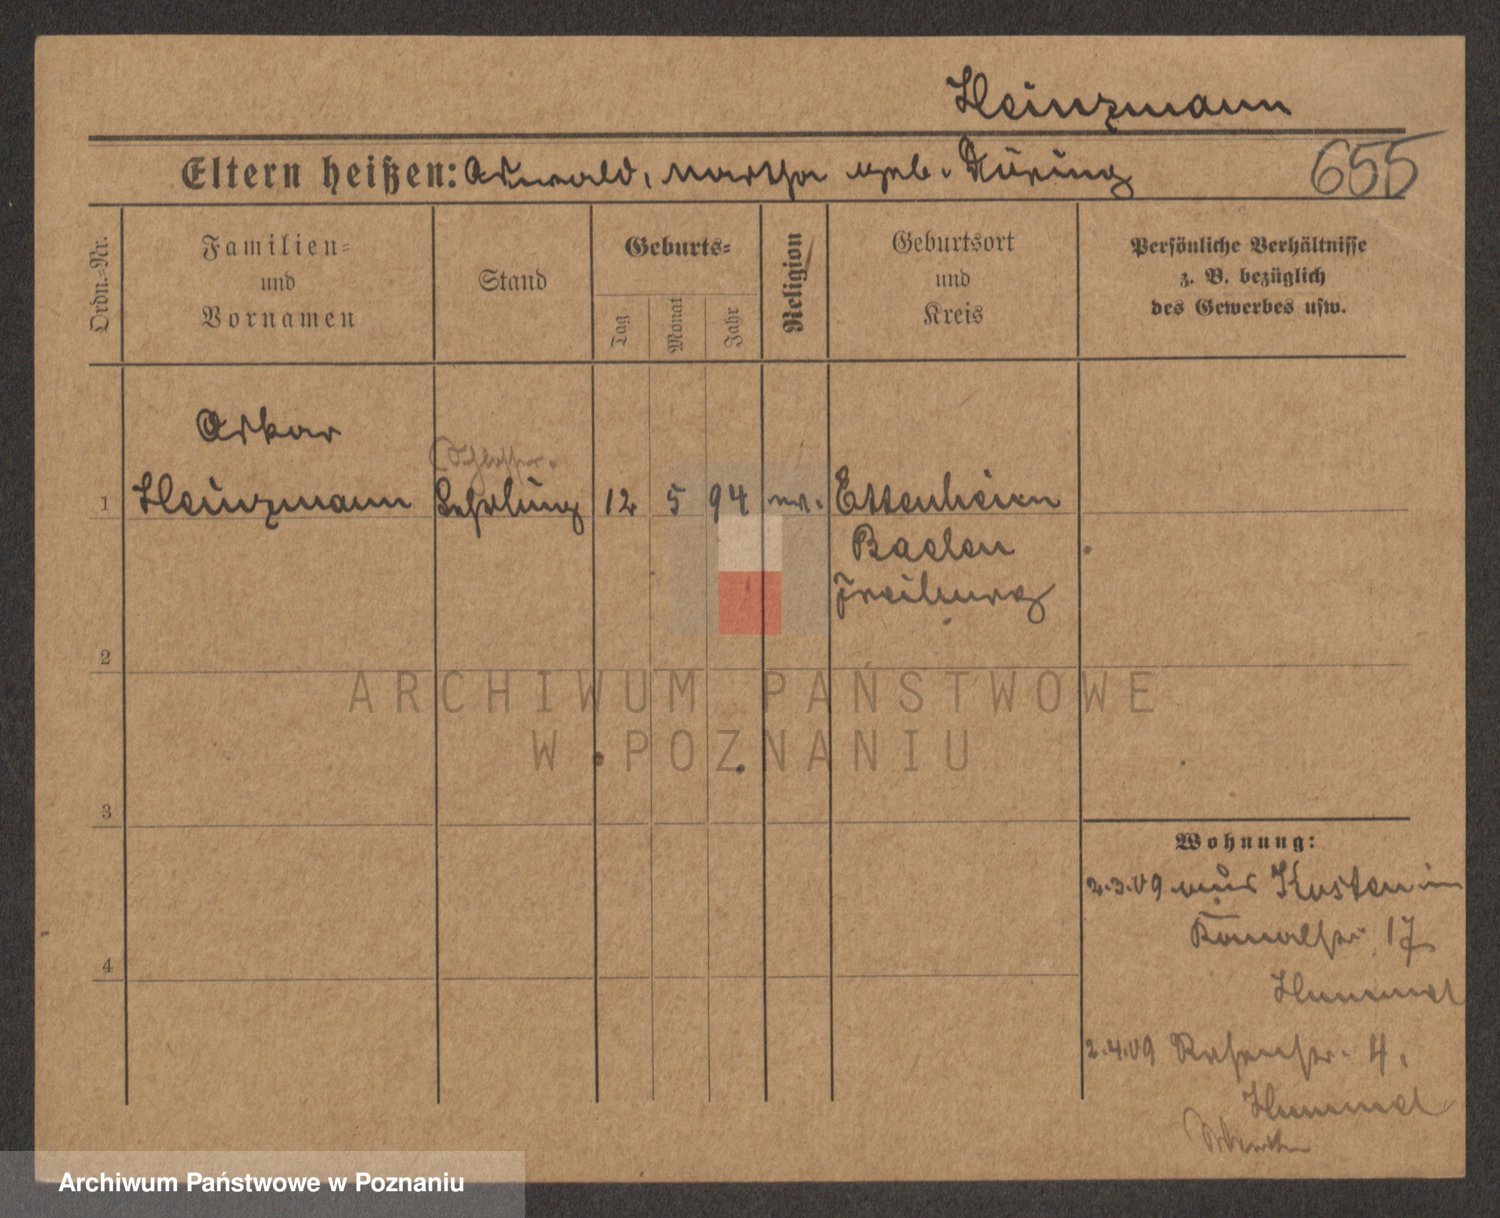 Heinzmann
Eltern heißen: Oswald, Martha geb. Düring
655
Ordn.-Nr.
Familien-
und
Vornamen
Stand
Geburts-
Tag
Monat
Jahr
Religion
Geburtsort
und
Kreis
Persönliche Verhältnisse
z. B. bezüglich
des Gewerbes usw.
Oskar
(Schlosser-
1 Heinzmann Lehrling 12 5 94 ev. Ettenheim
Baden
Freiburg
2
ARCHIWUM PAŃSTWOWE
W POZNANIU
3
Wohnung:
2.3.09 aus Kosten in
Kanalstr. 17
4
Hummel
2.4.09 Rosenstr. 4.
Hummel
Archiwum Państwowe w Poznaniu